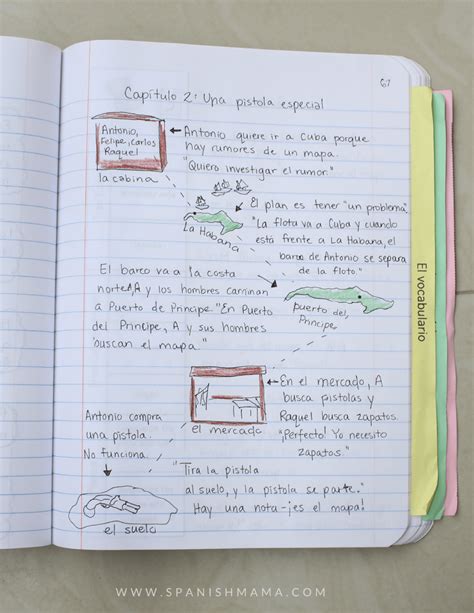 67
Capítulo 2: Una pistola especial
Antonio,
Felipe, Carlos
Raquel
la cabina
← Antonio quiere ir a Cuba porque
hay rumores de un mapa.
"Quiero investigar el rumor."
El plan es tener "un problema".
"La flota va a Cuba y cuando
está frente a La Habana, el
barco de Antonio se separa
de la flota."
La Habana
El barco va a la costa
norte, A, y los hombres caminan
a Puerto de Principe. "En Puerto
del Principe, A y sus hombres
buscan el mapa."
puerto del
Principe
← En el mercado, A
busca pistolas y
Raquel busca zapatos.
"¡Perfecto! Yo necesito
zapatos."
el mercado
Antonio compra
una pistola.
No funciona.
"Tira la pistola
al suelo, y la pistola se parte."
Hay una nota-¡es el mapa!
el suelo
El vocabulario
WWW.SPANISHMAMA.COM